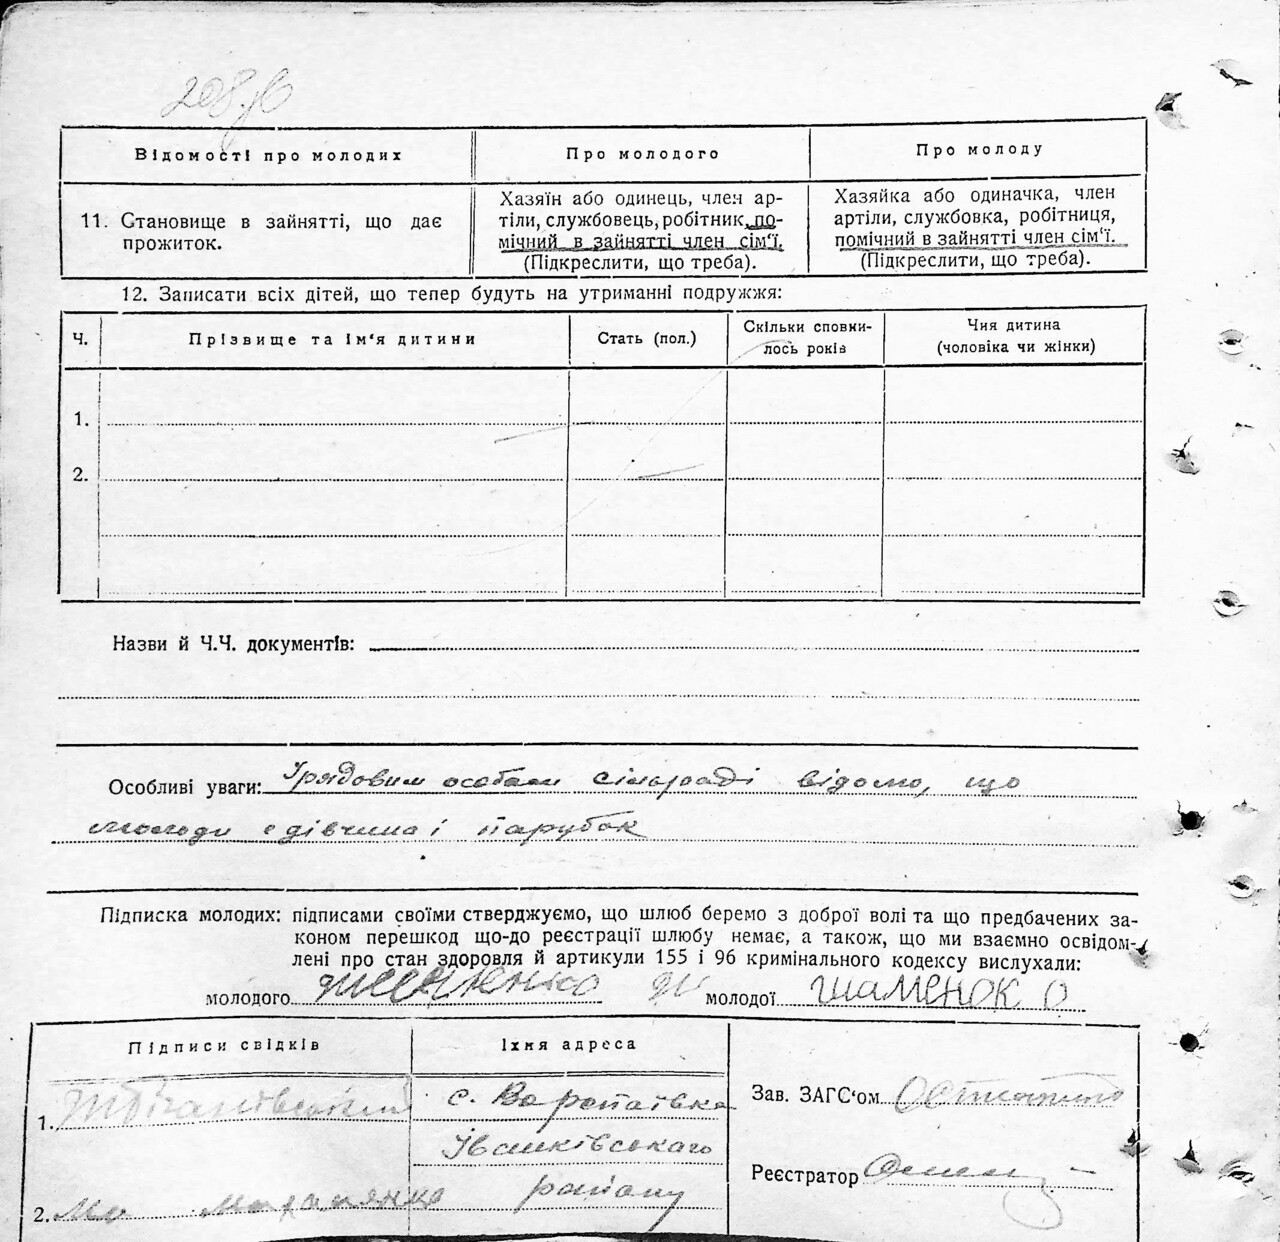 208
Відомості про молодих
Про молодого
Про молоду
11. Становище в зайнятті, що дає
прожиток.
Хазяїн або одинець, член ар-
тіли, службовець, робітник, по-
мічний в зайнятті член сім‘ї.
(Підкреслити, що треба).
Хазяйка або одиначка, член
артіли, службовка, робітниця,
помічний в зайнятті член сім‘ї.
(Підкреслити, що треба).
12. Записати всіх дітей, що тепер будуть на утриманні подружжя:
Ч.
Прізвище та ім‘я дитини
Стать (пол.)
Скільки сповни-
лось років
Чия дитина
(чоловіка чи жінки)
1.
2.
Назви й Ч.Ч. документів:
Особливі уваги: Урядовим особам сільраді відомо, що
молоди є дівчина і парубок
Підписка молодих: підписами своїми стверджуємо, що шлюб беремо з доброї волі та що предбачених за-
коном перешкод що-до реєстрації шлюбу немає, а також, що ми взаємно освідом-
лені про стан здоровля й артикули 155 і 96 кримінального кодексу вислухали:
молодого
молодої Шаменок О
Підписи свідків
Їхня адреса
1.
с. Воропаївка
Івашківського
району
2.
Зав. ЗАГС‘ом
Реєстратор